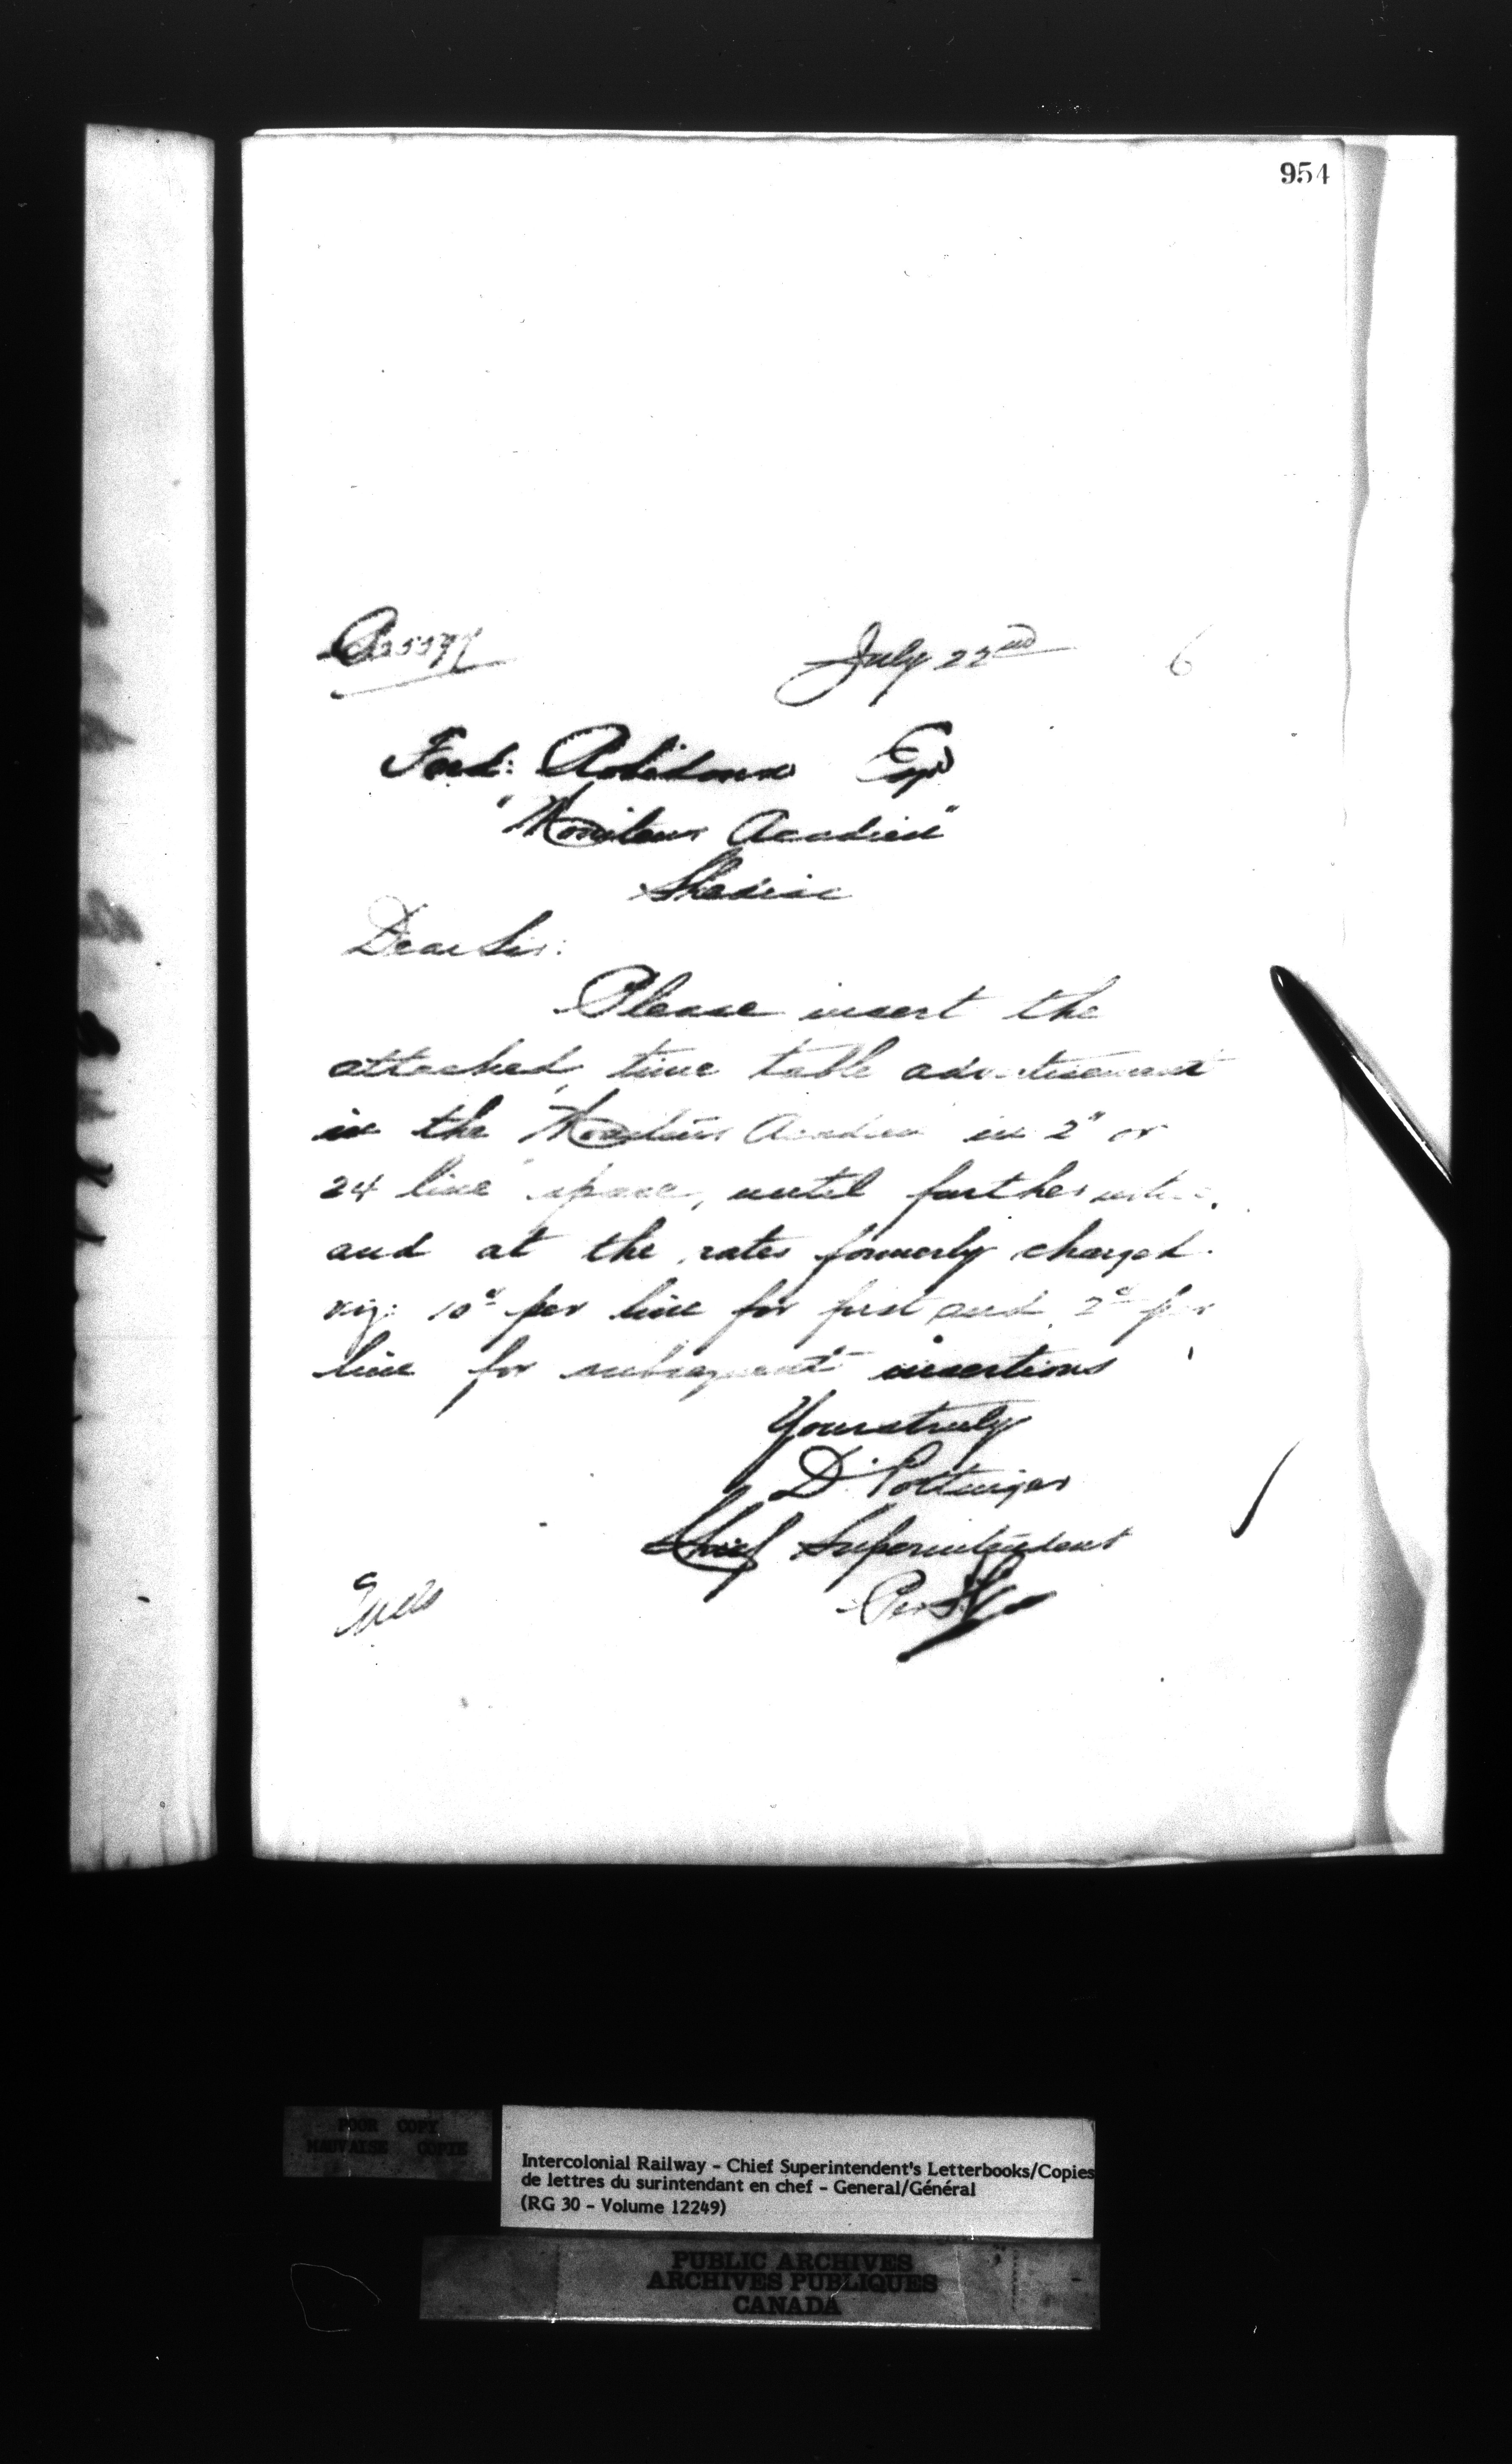 954
July 22nd 6
Ferd: Robidoux Esqr
"Moniteur Acadien"
Shediac
Dear Sir:
Please insert the
attached time table advertisement
in the "Moniteur Acadien" in 2" or
24 line space, until further notice,
and at the rates formerly charged.
viz: 10c per line for first and 2c per
line for subsequent insertions
Yours truly
D. Pottinger
Chief Superintendent
Per
POOR COPY
MAUVAISE COPIE
Intercolonial Railway - Chief Superintendent's Letterbooks/Copies
de lettres du surintendant en chef - General/Général
(RG 30 - Volume 12249)
PUBLIC ARCHIVES
ARCHIVES PUBLIQUES
CANADA